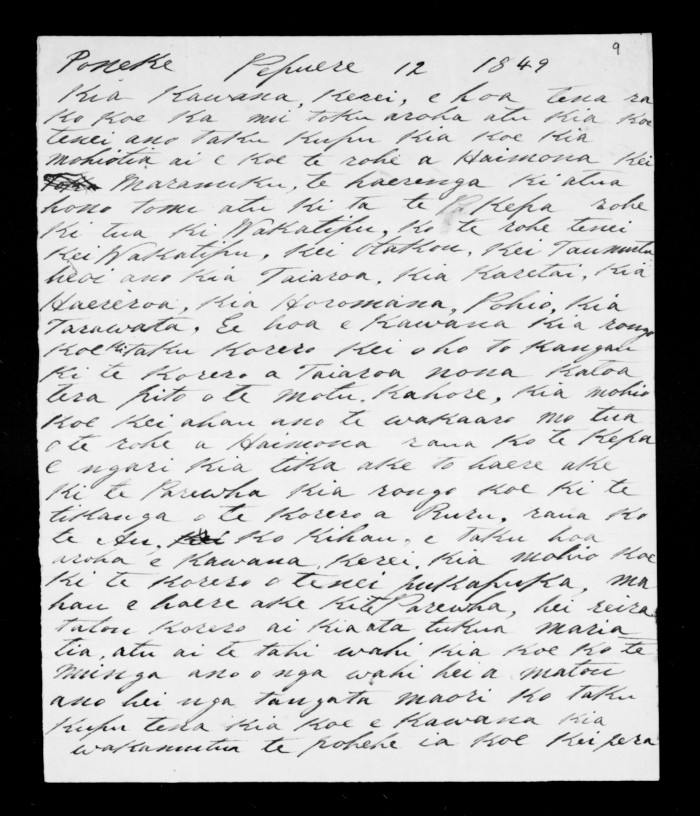 9
Poneke Pepuere 12 1849
Kia Kawana, Kerei, e hoa tena ra
ko koe ka mi toku aroha atu kia koe
tenei ano taku kupu kia koe kia
mohiotia ai e koe te rohe a Haimona kei
Maranuku, te haerenga ki atua
hono tomu atu ki ta te Kepa rohe
ki tua ki Wakatipu, ko te rohe tenei
kei Wakatipu, kei Otakou, kei Taumutu
heoi ano kia Taiaroa, kia Karetai, kia
Haereroa, kia Horomana, Pohio, kia
Tarawata, Ee hoa e Kawana kia rongo
koe ki taku korero kei oho to
ki te korero a Taiaroa nona katoa
tera pito o te motu. Kahore, kia mohio
koe kei ahau ano te wakaaro mo tua
o te rohe a Haimona raua ko te Kepa
e ngari kia tika ake to haere ake
ki te Parewha kia rongo koe ki te
tikanga o te korero a Ruru, raua ko
te Au, ko Kihau, e taku hoa
aroha e Kawana, Kerei, kia mohio koe
ki te korero o tenei pukapuka, ma
hau e haere ake ki te Parewha, hei reira
tatou korero ai kia ata tukua maria
tia, atu ai te tahi wahi kia koe ko te
nuinga ano o nga wahi hei a matou
ano hei nga tangata maori ko taku
kupu tena kia koe e Kawana kia
wakamutua te pohehe ia koe kei pera